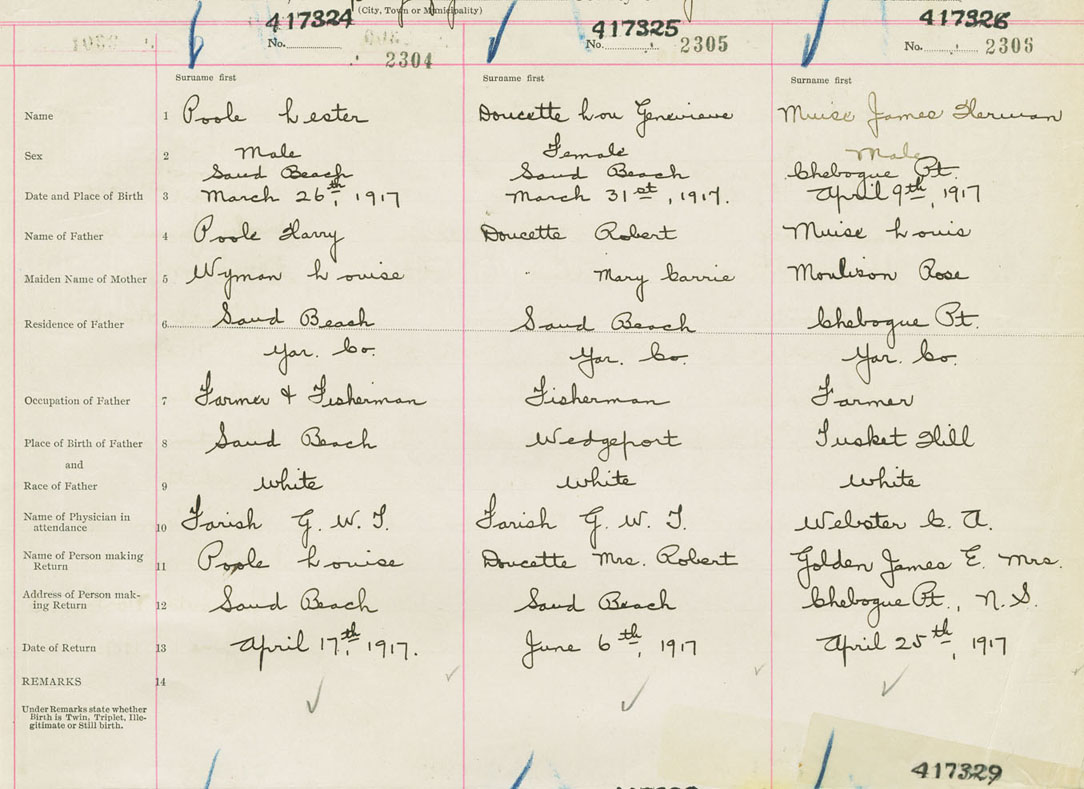 (City, Town or Municipality)
417324 417325 417326
No. 2304 No. 2305 No. 2306
Surname first Surname first Surname first
Name 1 Poole Lester Doucette Lou Genevieve Muise James Herman
Sex 2 Male Female Male
Sand Beach Sand Beach Chebogue Pt.
Date and Place of Birth 3 March 26th, 1917 March 31st, 1917. April 9th, 1917
Name of Father 4 Poole Harry Doucette Robert Muise Louis
Maiden Name of Mother 5 Wyman Louise " Mary Carrie Moulison Rose
Residence of Father 6 Sand Beach Sand Beach Chebogue Pt.
Yar. Co. Yar. Co. Yar. Co.
Occupation of Father 7 Farmer & Fisherman Fisherman Farmer
Place of Birth of Father 8 Sand Beach Wedgeport Tusket Hill
and
Race of Father 9 White White White
Name of Physician in
attendance 10 Farish G. W. T. Farish G. W. T. Webster C. A.
Name of Person making
Return 11 Poole Louise Doucette Mrs. Robert Golden James E. Mrs.
Address of Person mak-
ing Return 12 Sand Beach Sand Beach Chebogue Pt., N.S.
Date of Return 13 April 17th, 1917. June 6th, 1917 April 25th, 1917
REMARKS 14
Under Remarks state whether
Birth is Twin, Triplet, Ille-
gitimate or Still birth.
417329